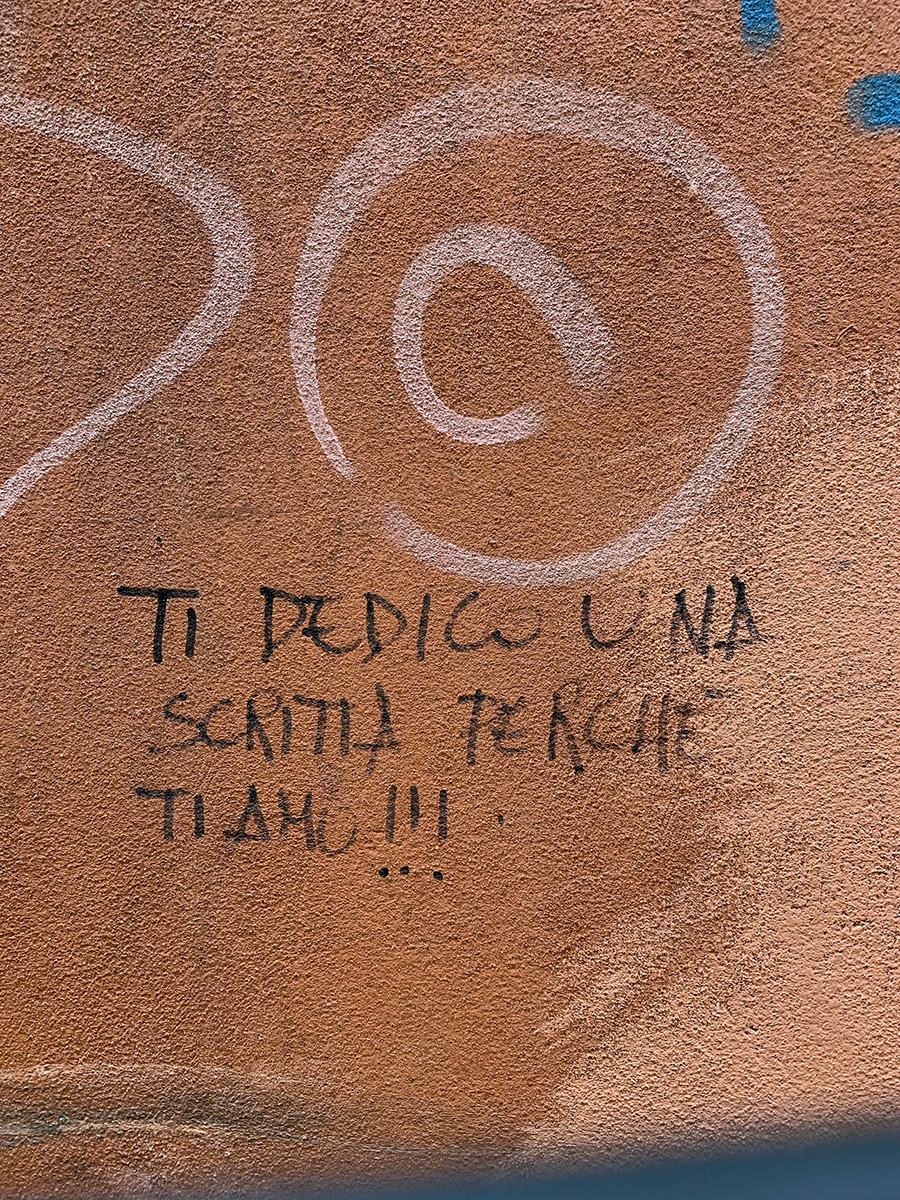 TI DEDICO UNA
SCRITTA PERCHÈ
TI AMO!!!